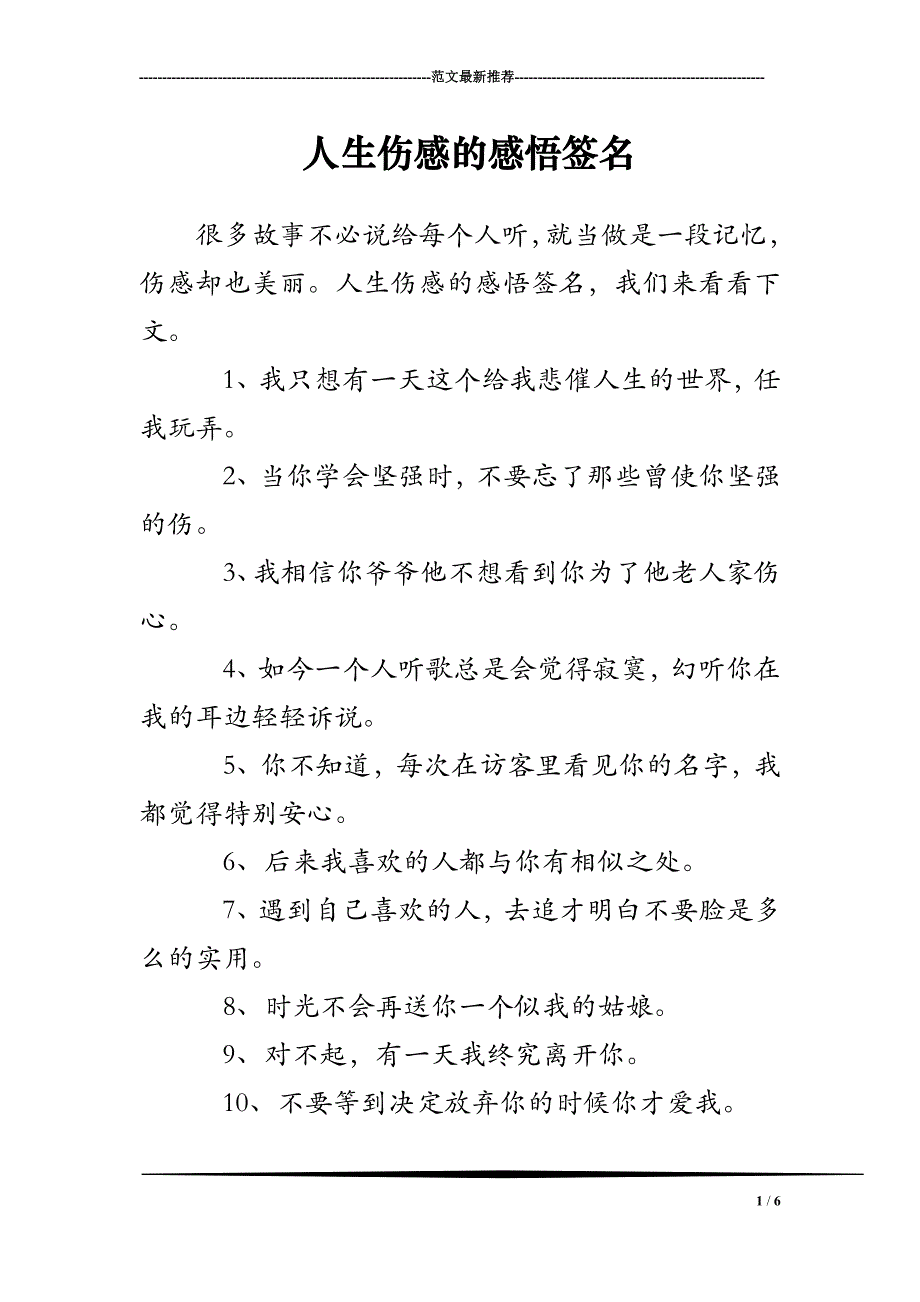 ---------------------------------------------------------------范文最新推荐------------------------------------------------------
人生伤感的感悟签名
很多故事不必说给每个人听，就当做是一段记忆，
伤感却也美丽。人生伤感的感悟签名，我们来看看下
文。
1、我只想有一天这个给我悲催人生的世界，任
我玩弄。
2、当你学会坚强时，不要忘了那些曾使你坚强
的伤。
3、我相信你爷爷他不想看到你为了他老人家伤
心。
4、如今一个人听歌总是会觉得寂寞，幻听你在
我的耳边轻轻诉说。
5、你不知道，每次在访客里看见你的名字，我
都觉得特别安心。
6、后来我喜欢的人都与你有相似之处。
7、遇到自己喜欢的人，去追才明白不要脸是多
么的实用。
8、时光不会再送你一个似我的姑娘。
9、对不起，有一天我终究离开你。
10、不要等到决定放弃你的时候你才爱我。
1 / 6